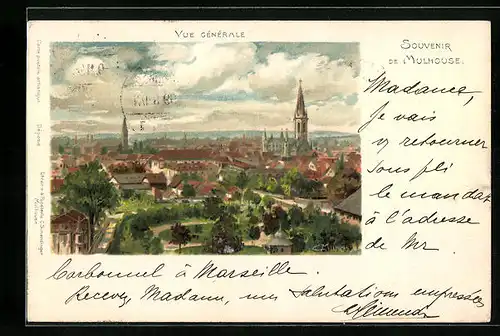 VUE GÉNÉRALE
SOUVENIR
DE MULHOUSE.
Madame,
Je vais
y retourner
sous pli
le mandat
à l'adresse
de Mr
Carbonnel à Marseille.
Recevez, Madame, mes salutations empressées